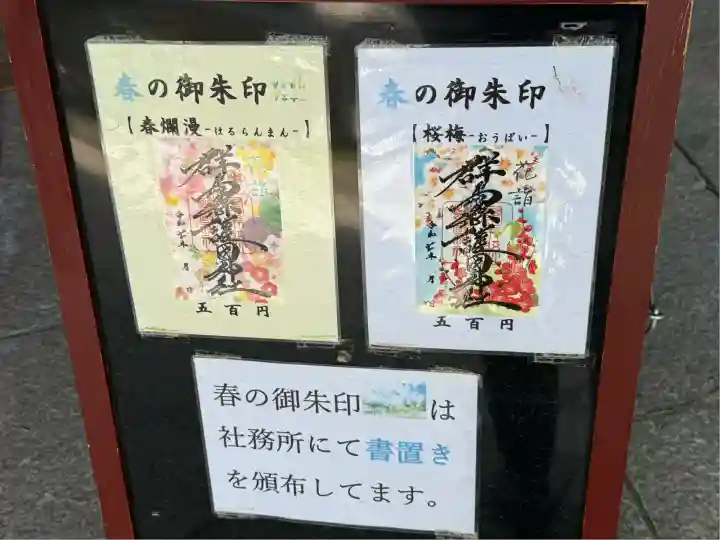 春の御朱印
【春爛漫-はるらんまん-】
群馬縣護國神社
月
五百円
春の御朱印
【桜梅-おうばい-】
花詣
群馬縣護國神社
月
五百円
春の御朱印は
社務所にて書置き
を頒布してます。